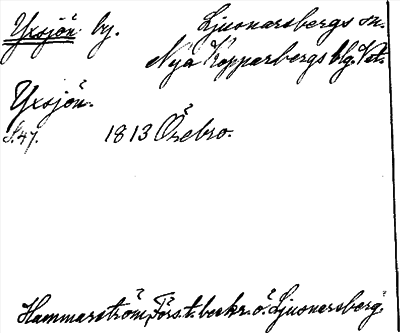 Yxsjön by. Ljusnarsbergs sn.
Nya Kopparbergs blg. Vst.
Yxsjön.
S.47. 1813 Örebro.
Hammarström, Förs.t. beskr. ö. Ljusnarsberg.